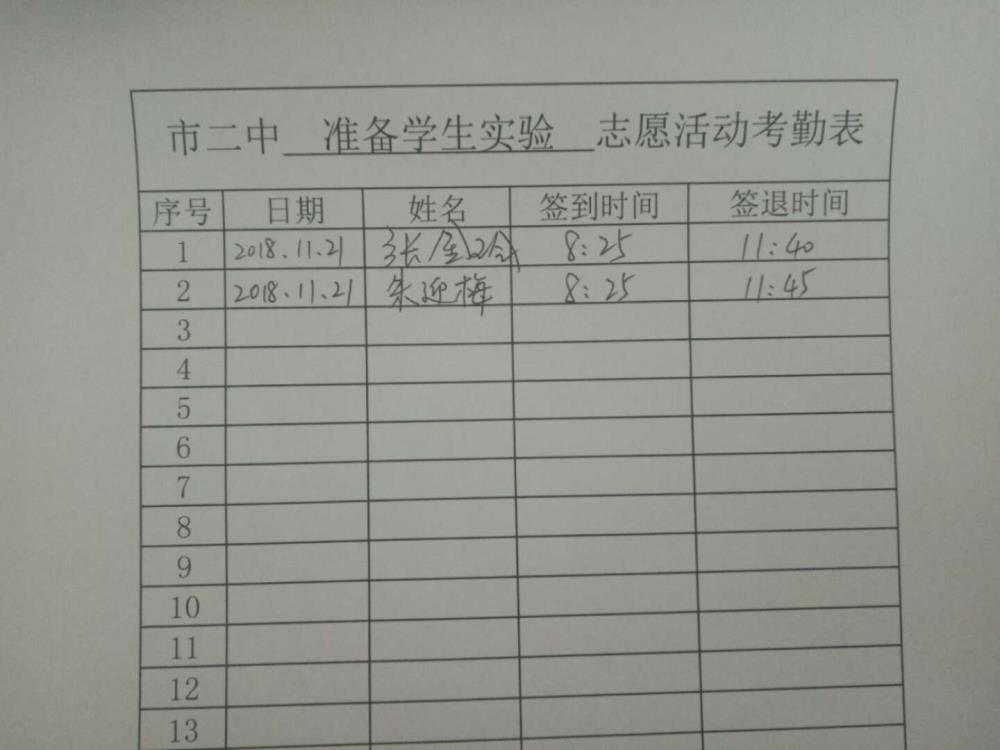 市二中 准备学生实验 志愿活动考勤表
序号 日期 姓名 签到时间 签退时间
1 2018.11.21 张 8:25 11:40
2 2018.11.21 朱迎梅 8:25 11:45
3
4
5
6
7
8
9
10
11
12
13